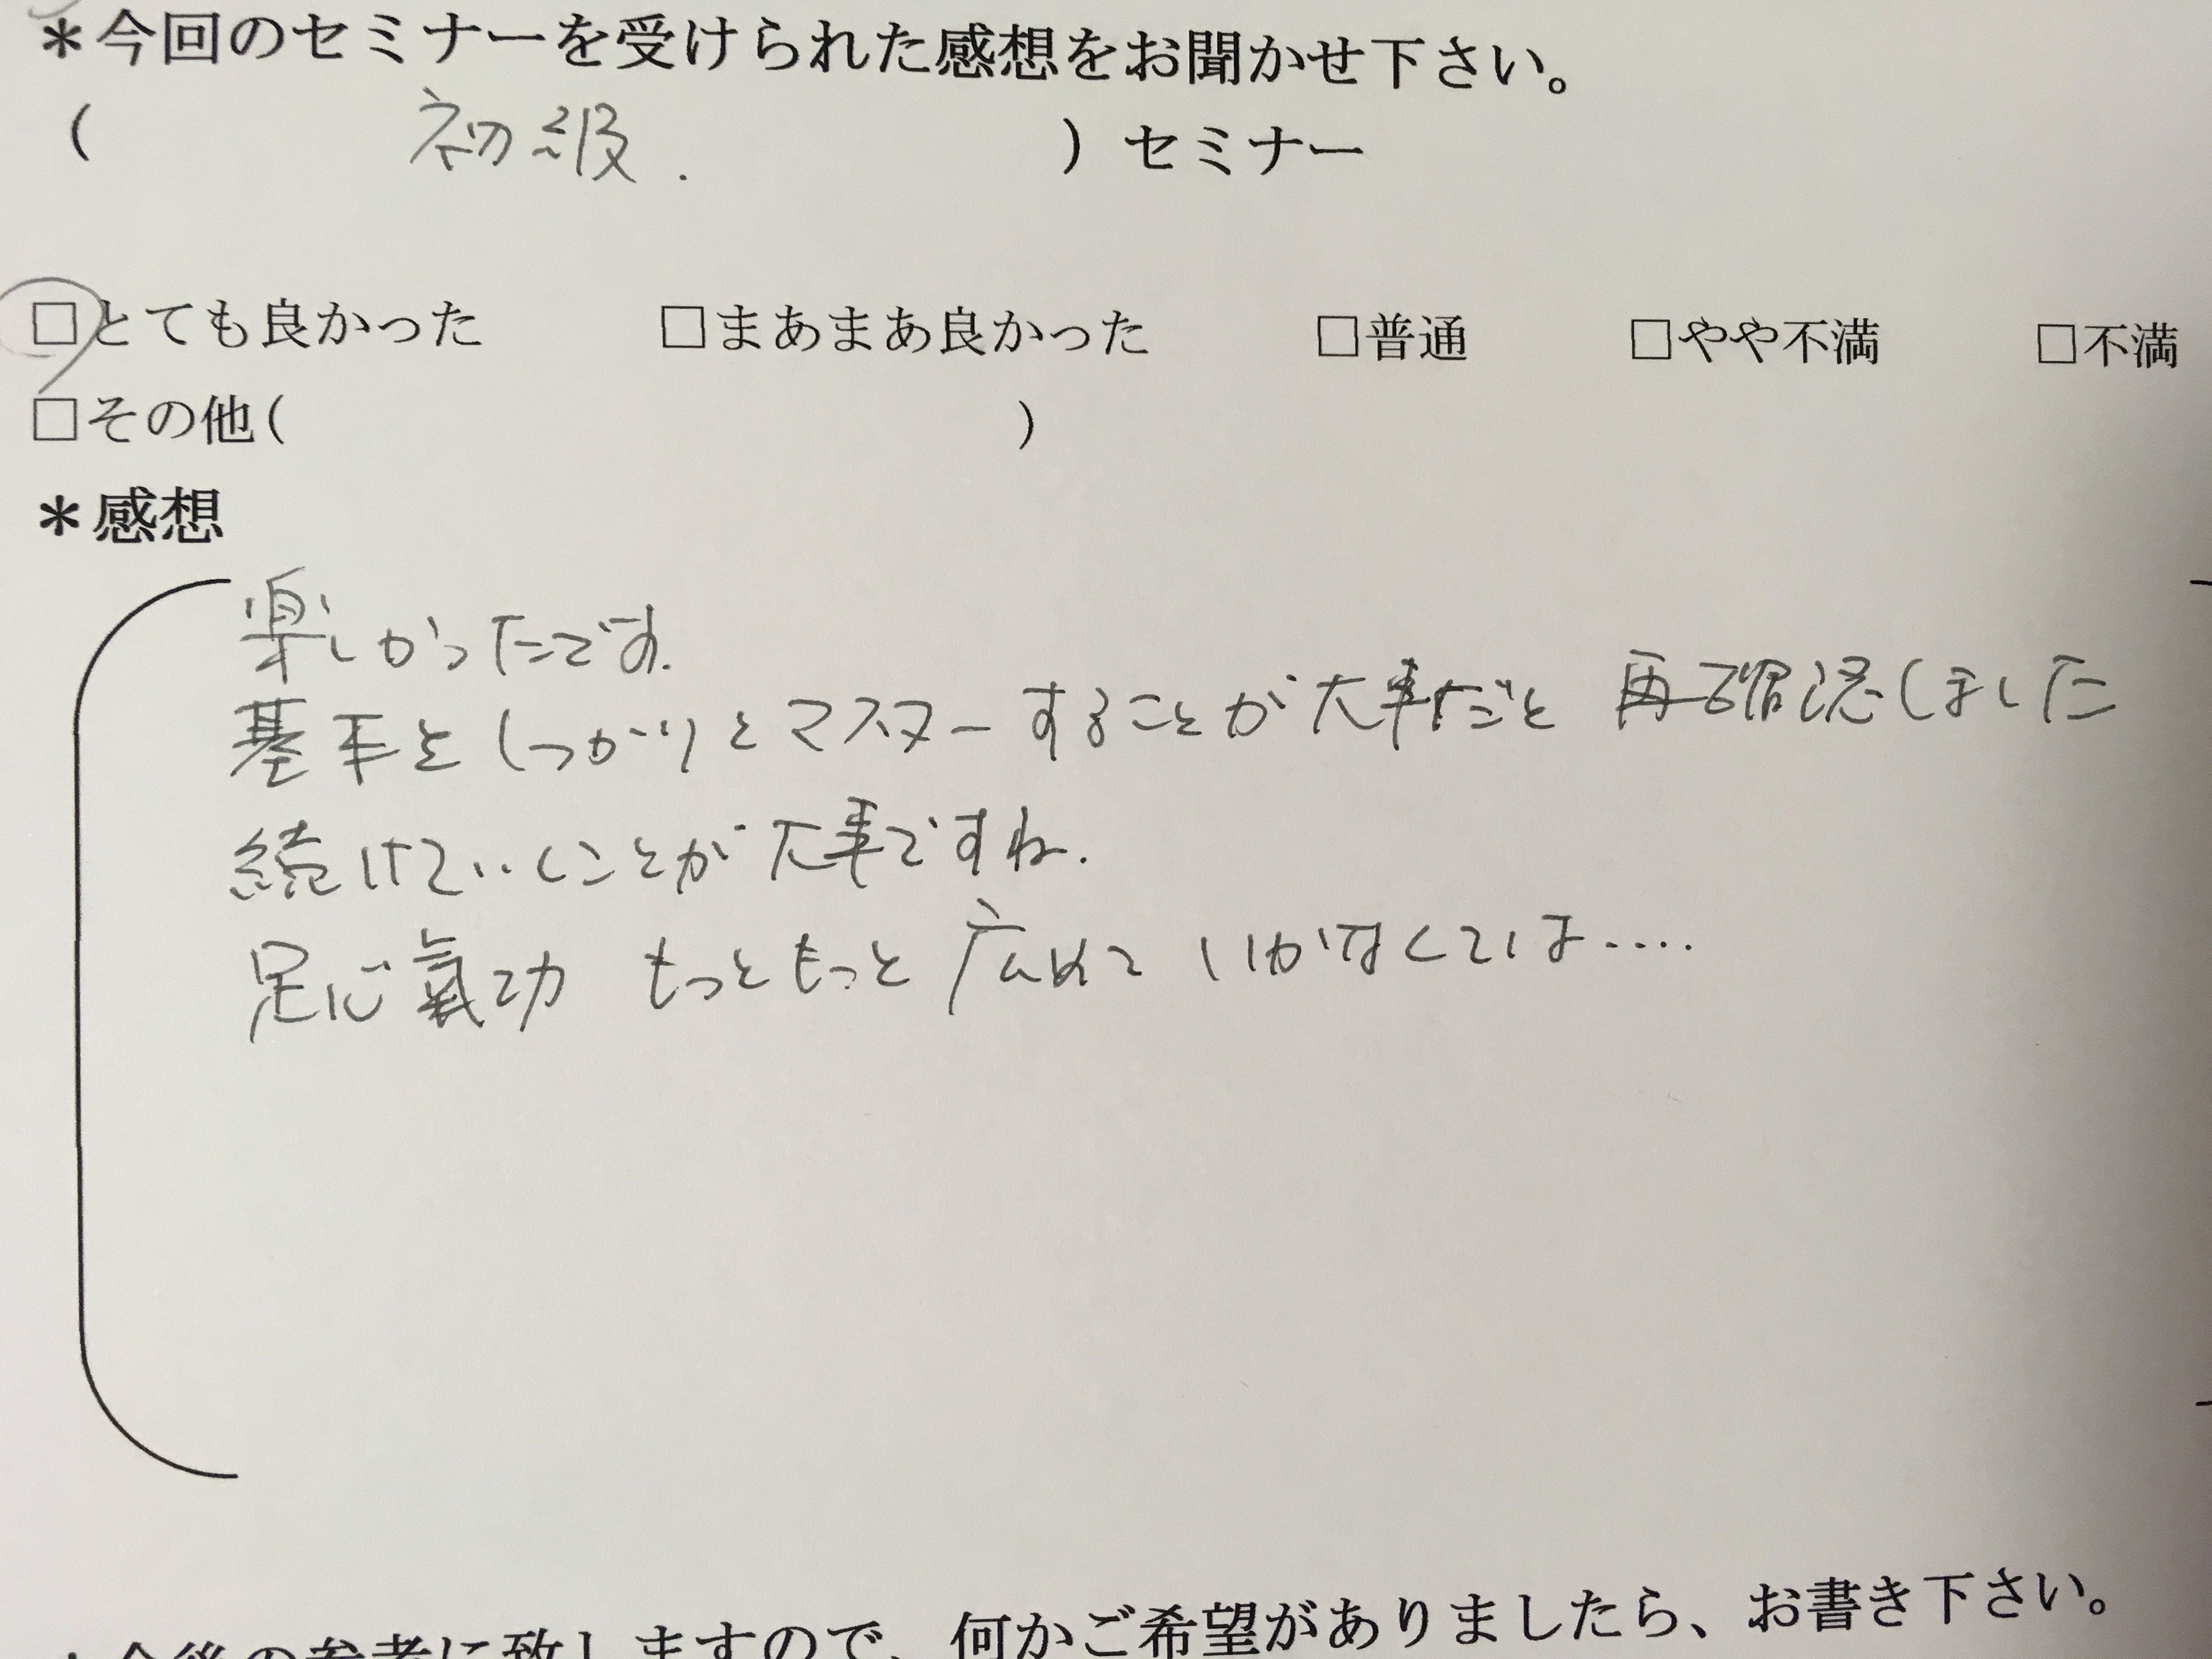 ＊今回のセミナーを受けられた感想をお聞かせ下さい。
(初級.)セミナー
□とても良かった □まあまあ良かった □普通 □やや不満 □不満
□その他( )
＊感想
楽しかったです.
基本をしっかりとマスターすることが大事だと 再確認しました
続けていくことが大事ですね.
足心氣功 もっともっと広めて いかなくては....
今後の参考に致しますので、何かご希望がありましたら、お書き下さい。